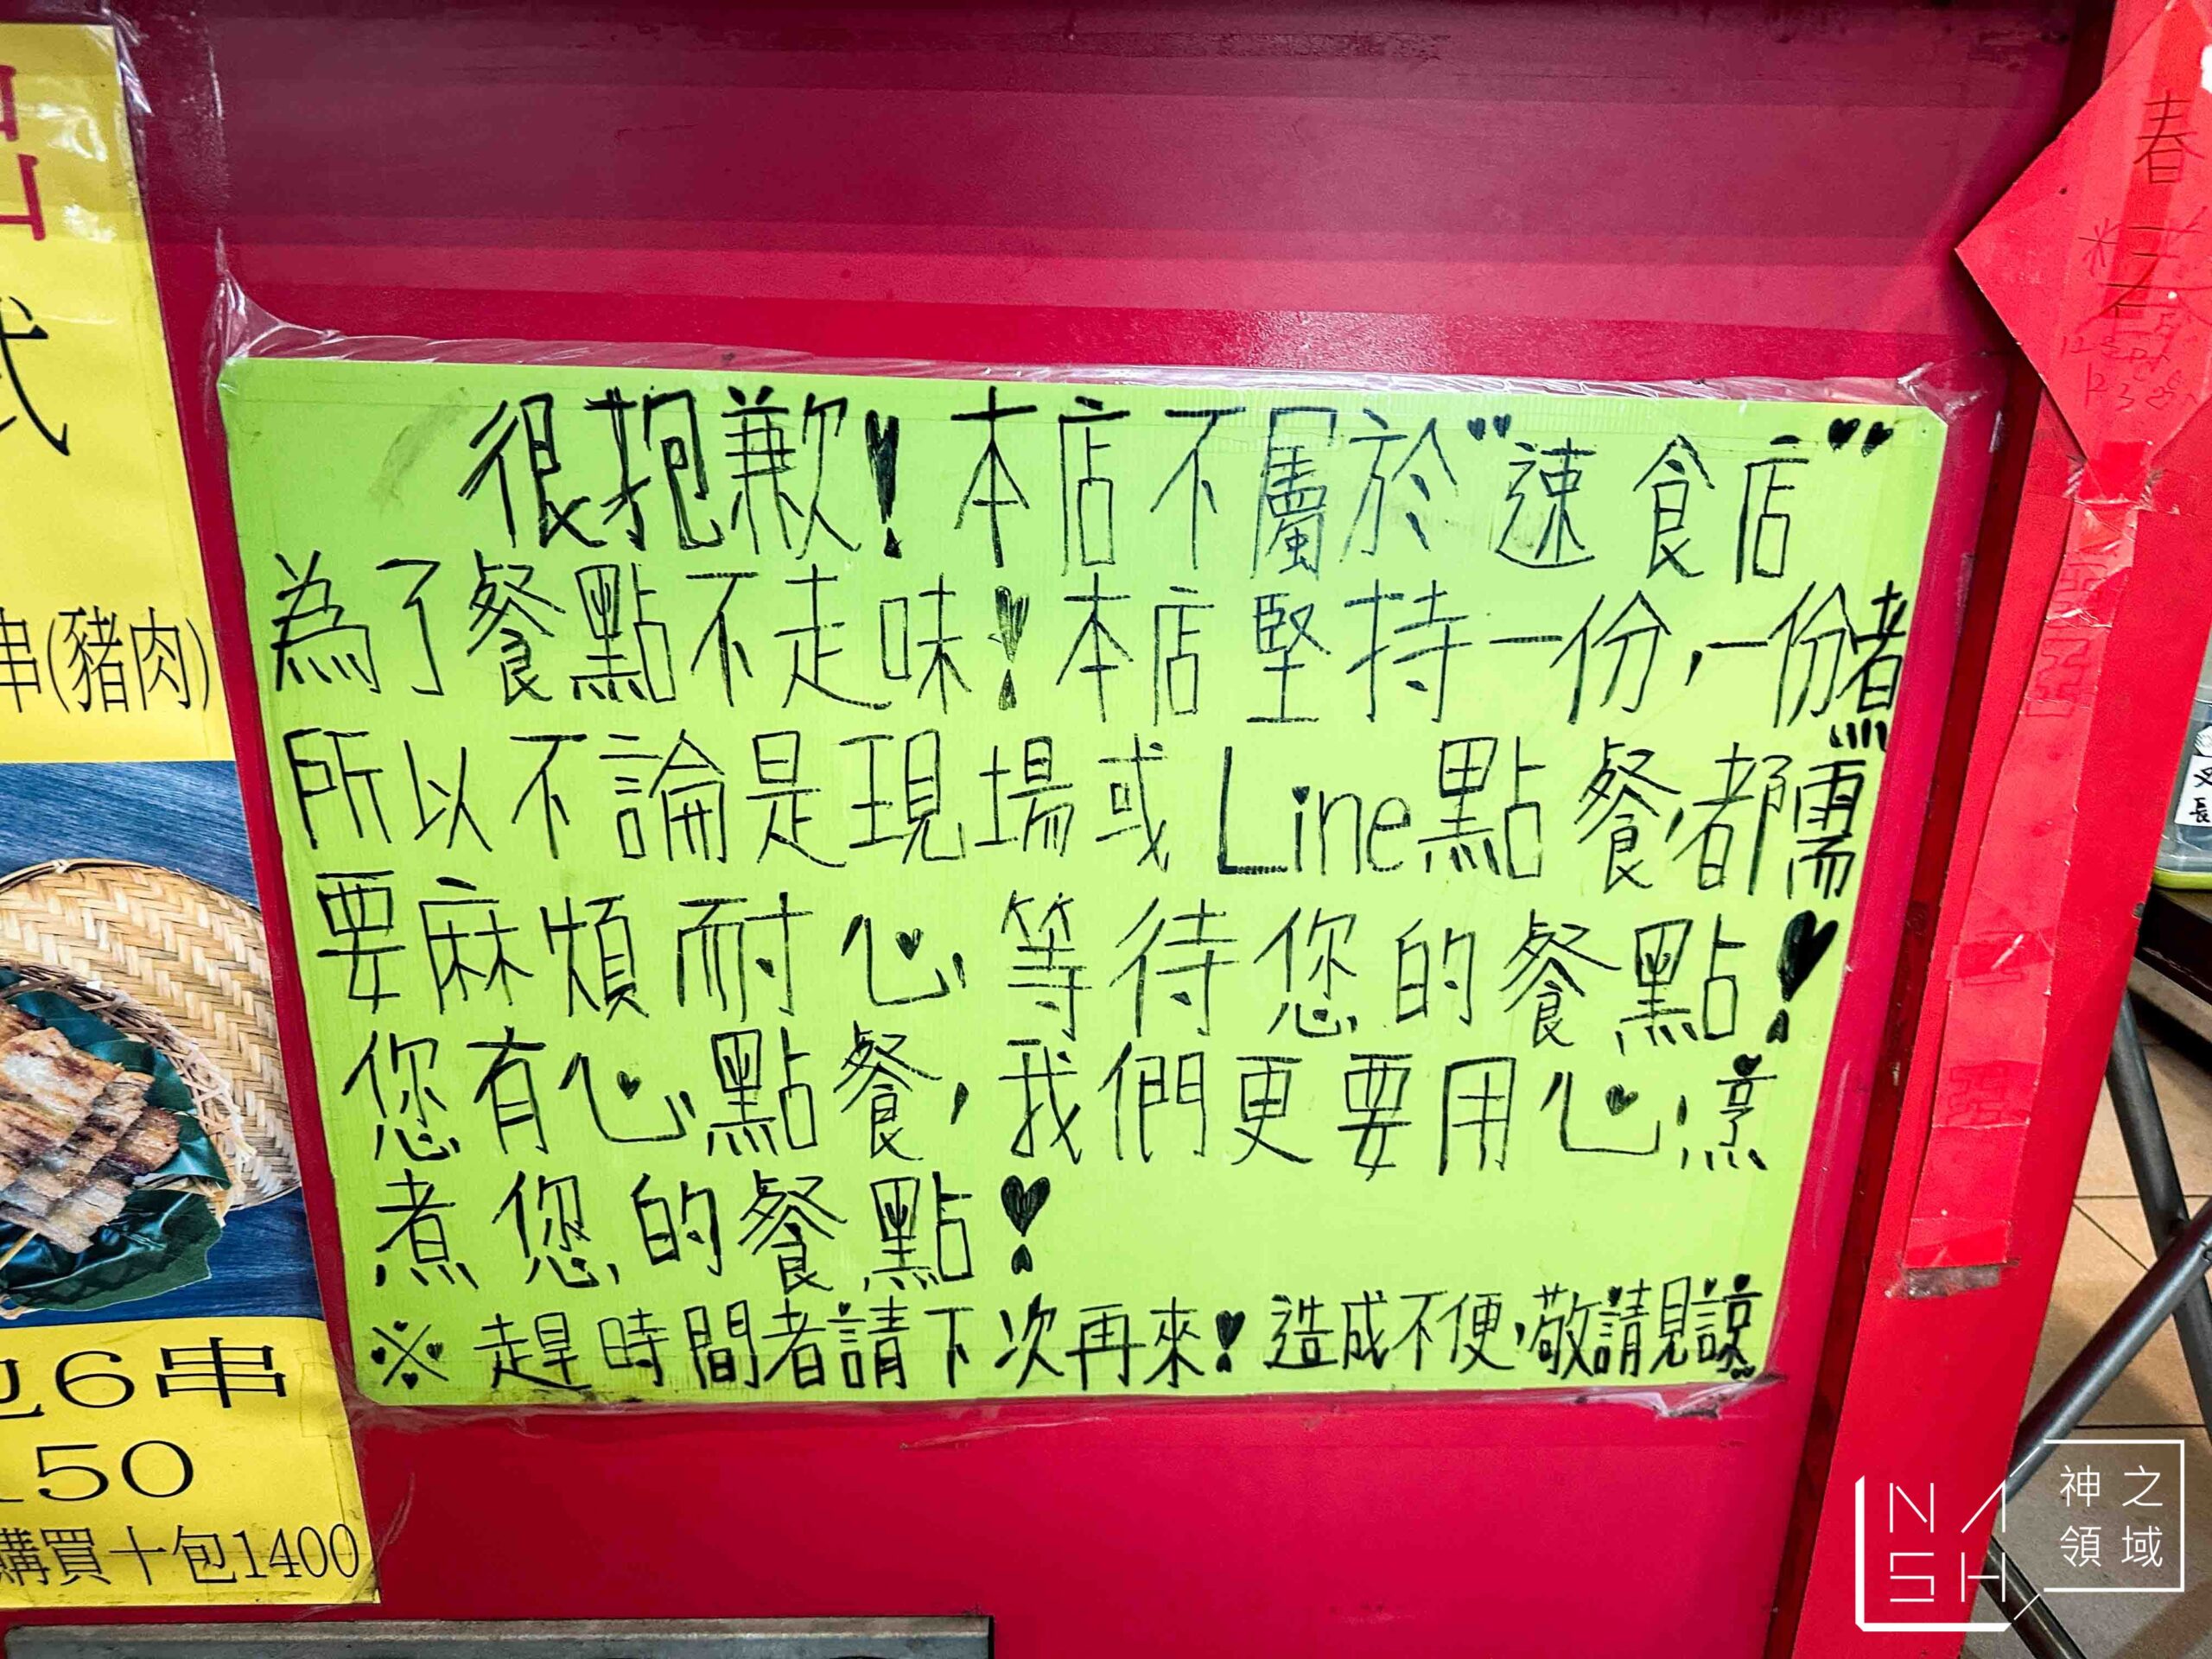 很抱歉！本店不屬於"速食店"
為了餐點不走味！本店堅持一份，一份煮
所以不論是現場或Line點餐，都需
要麻煩耐心等待您的餐點！
您有心點餐，我們更要用心烹
煮您的餐點！
※趕時間者請下次再來！造成不便，敬請見諒
串(豬肉)
包6串
150
購買十包1400
春
NASH
神之
領域